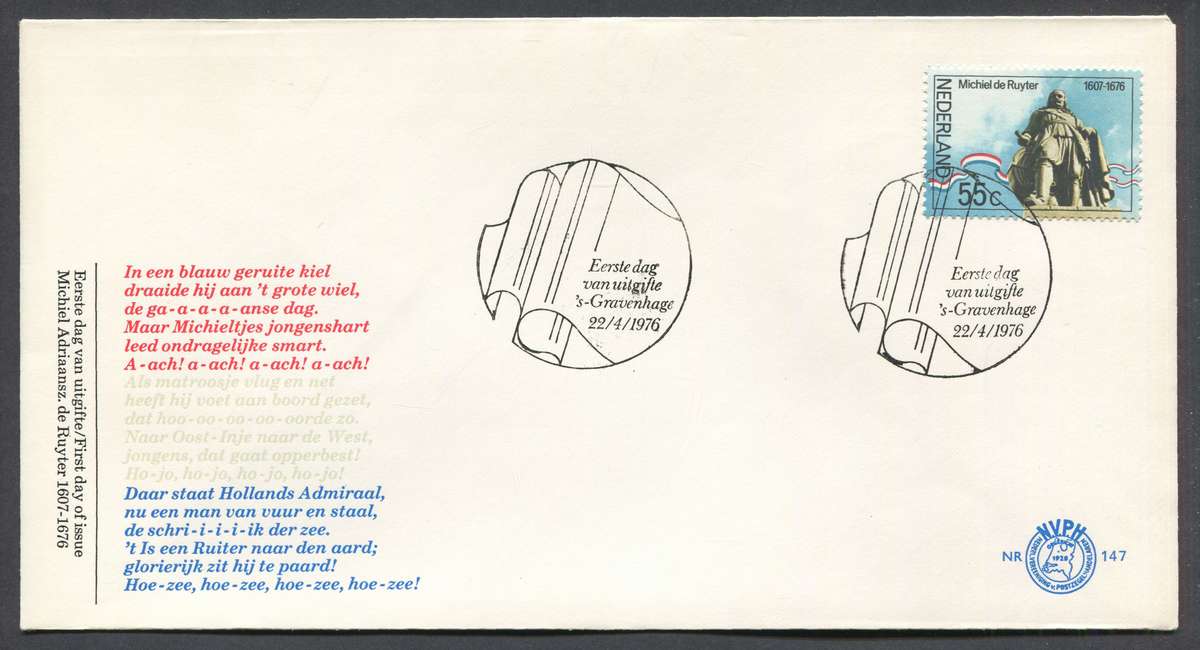 Michiel de Ruyter 1607-1676
NEDERLAND
55c
Eerste dag
van uitgifte
's-Gravenhage
22/4/1976
Eerste dag
van uitgifte
's-Gravenhage
22/4/1976
Eerste dag van uitgifte/First day of issue
Michiel Adriaansz. de Ruyter 1607-1676
In een blauw geruite kiel
draaide hij aan 't grote wiel,
de ga-a-a-a-anse dag.
Maar Michieltjes jongenshart
leed ondragelijke smart.
A-ach! a-ach! a-ach! a-ach!
Als matroosje vlug en net
heeft hij voet aan boord gezet,
dat hoo-oo-oo-oo-oorde zo.
Naar Oost-Inje naar de West,
jongens, dat gaat opperbest!
Ho-jo, ho-jo, ho-jo, ho-jo!
Daar staat Hollands Admiraal,
nu een man van vuur en staal,
de schri-i-i-i-ik der zee.
't Is een Ruiter naar den aard;
glorierijk zit hij te paard!
Hoe-zee, hoe-zee, hoe-zee, hoe-zee!
NR 147
N.V.P.H.
1928